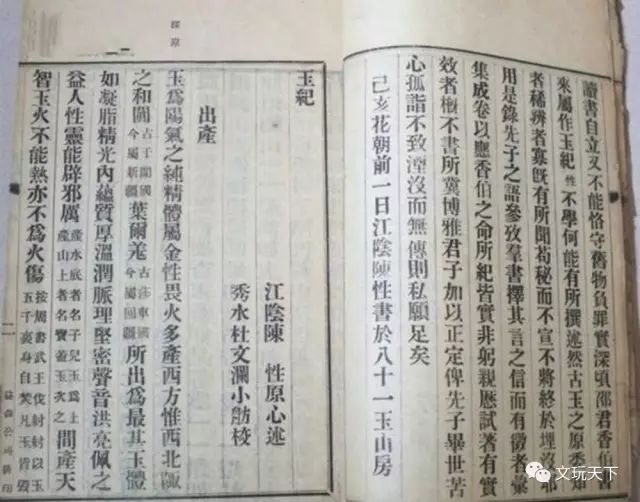 讀書自立又不能恪守舊物負罪實深頃邵君香伯
來屬作玉紀性不學何能有所撰述然古玉之原委知
者稀辨者寡旣有所聞苟秘而不宣不將終於埋沒耶
用是錄先子之語參攷羣書擇其言之信而有徵者彙
集成卷以應香伯之命所紀皆實非躬親歷試著有實
效者槪不書所冀博雅君子加以正定俾先子畢世苦
心孤詣不致湮沒而無傳則私願足矣
己亥花朝前一日江陰陳性書於八十一玉山房
玉紀
江陰陳 性原心述
秀水杜文瀾小舫校
出產
玉爲陽氣之純精體屬金性畏火多產西方惟西北陬
之和闐古于闐國今屬新疆葉爾羌古莎車國今屬回疆所出爲最其玉體
如凝脂精光內蘊質厚溫潤脈理堅密聲音洪亮佩之
益人性靈能辟邪厲產水底者名子兒玉爲上產山上者名寶蓋玉次之間產天
智玉火不能熱亦不爲火傷按周書武王伐紂紂以玉五千裹身自焚凡玉皆毀
二
文玩天下